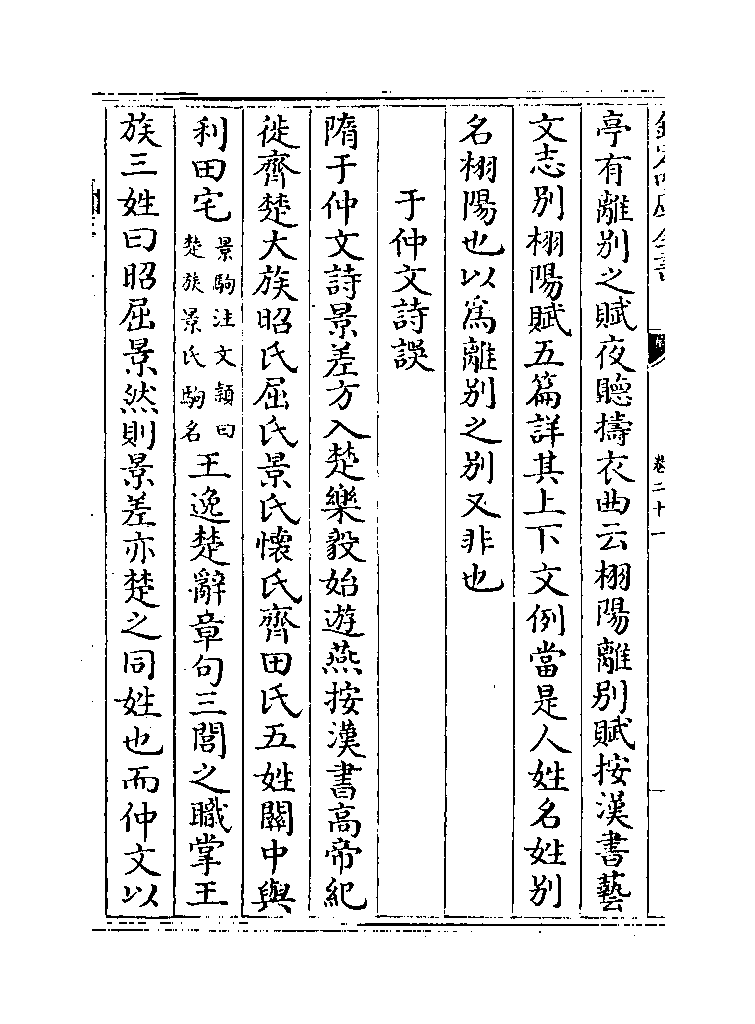 亭有離別之賦夜聽擣衣曲云栩陽離別賦按漢書藝
文志別栩陽賦五篇詳其上下文例當是人姓名姓別
名栩陽也以為離別之別又非也
于仲文詩誤
隋于仲文詩景差方入楚樂毅始遊燕按漢書高帝紀
徙齊楚大族昭氏屈氏景氏懷氏齊田氏五姓關中與
利田宅景駒注文頴曰楚族景氏駒名王逸楚辭章句三閭之職掌王
族三姓曰昭屈景然則景差亦楚之同姓也而仲文以
卷二十一